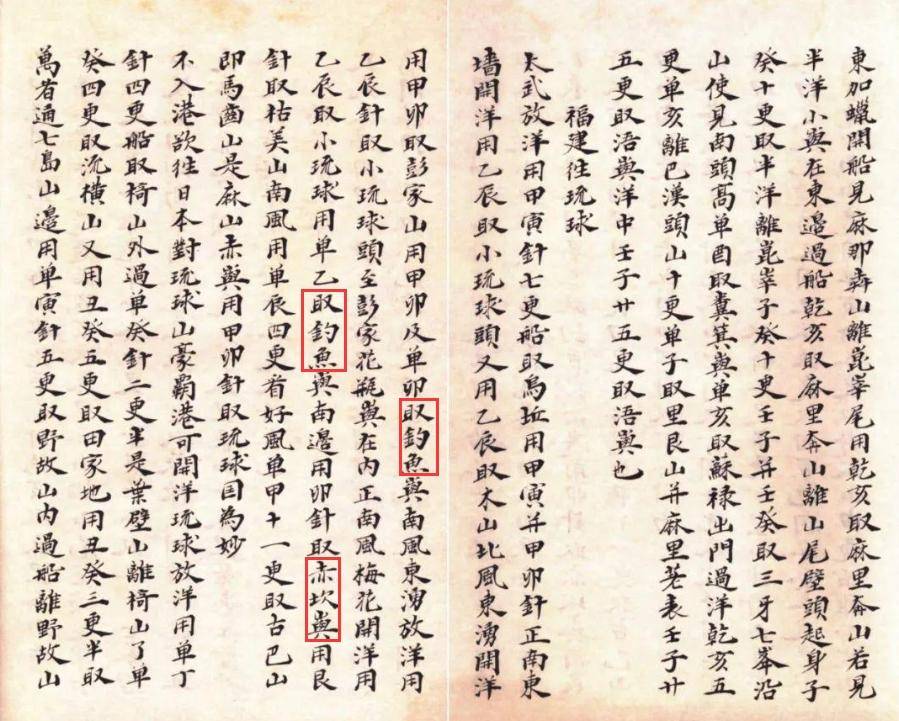 東加蠟開船見麻那犇山離崑峷尾用乾亥取麻里奔山若見
半洋小㠘在東邉過船乾亥取麻里奔山離山尾壁頭起身子
癸十更取半洋離崑峷子癸十更壬子并壬癸取三牙七峯沿
山使見南頭高单酉取糞箕㠘单亥取蘇祿出門過洋乾亥五
更单亥離巳漢頭山十更单子取里艮山并麻里荖表壬子廿
五更取浯㠘洋中壬子廿五更取浯㠘也
福建徃琉球
太武放洋用甲寅針七更船取烏坵用甲寅并甲卯針正南東
墻開洋用乙辰取小琉球頭又用乙辰取木山北風東湧開洋
用甲卯取彭家山用甲卯及单卯取釣魚㠘南風東湧放洋用
乙辰針取小琉球頭至彭家花瓶㠘在内正南風梅花開洋用
乙辰取小琉球用单乙取釣魚㠘南邉用卯針取赤坎㠘用艮
針取枯美山南風用单辰四更看好風单甲十一更取古巴山
即馬齒山是麻山赤㠘用甲卯針取琉球囯為妙
不入港欲徃日本對琉球山豪覇港可開洋琉球放洋用单丁
針四更船取椅山外過单癸針二更半是葉壁山離椅山了单
癸四更取流横山又用丑癸五更取田家地用丑癸三更半取
萬者通七島山邉用单寅針五更取野故山内過船離野故山